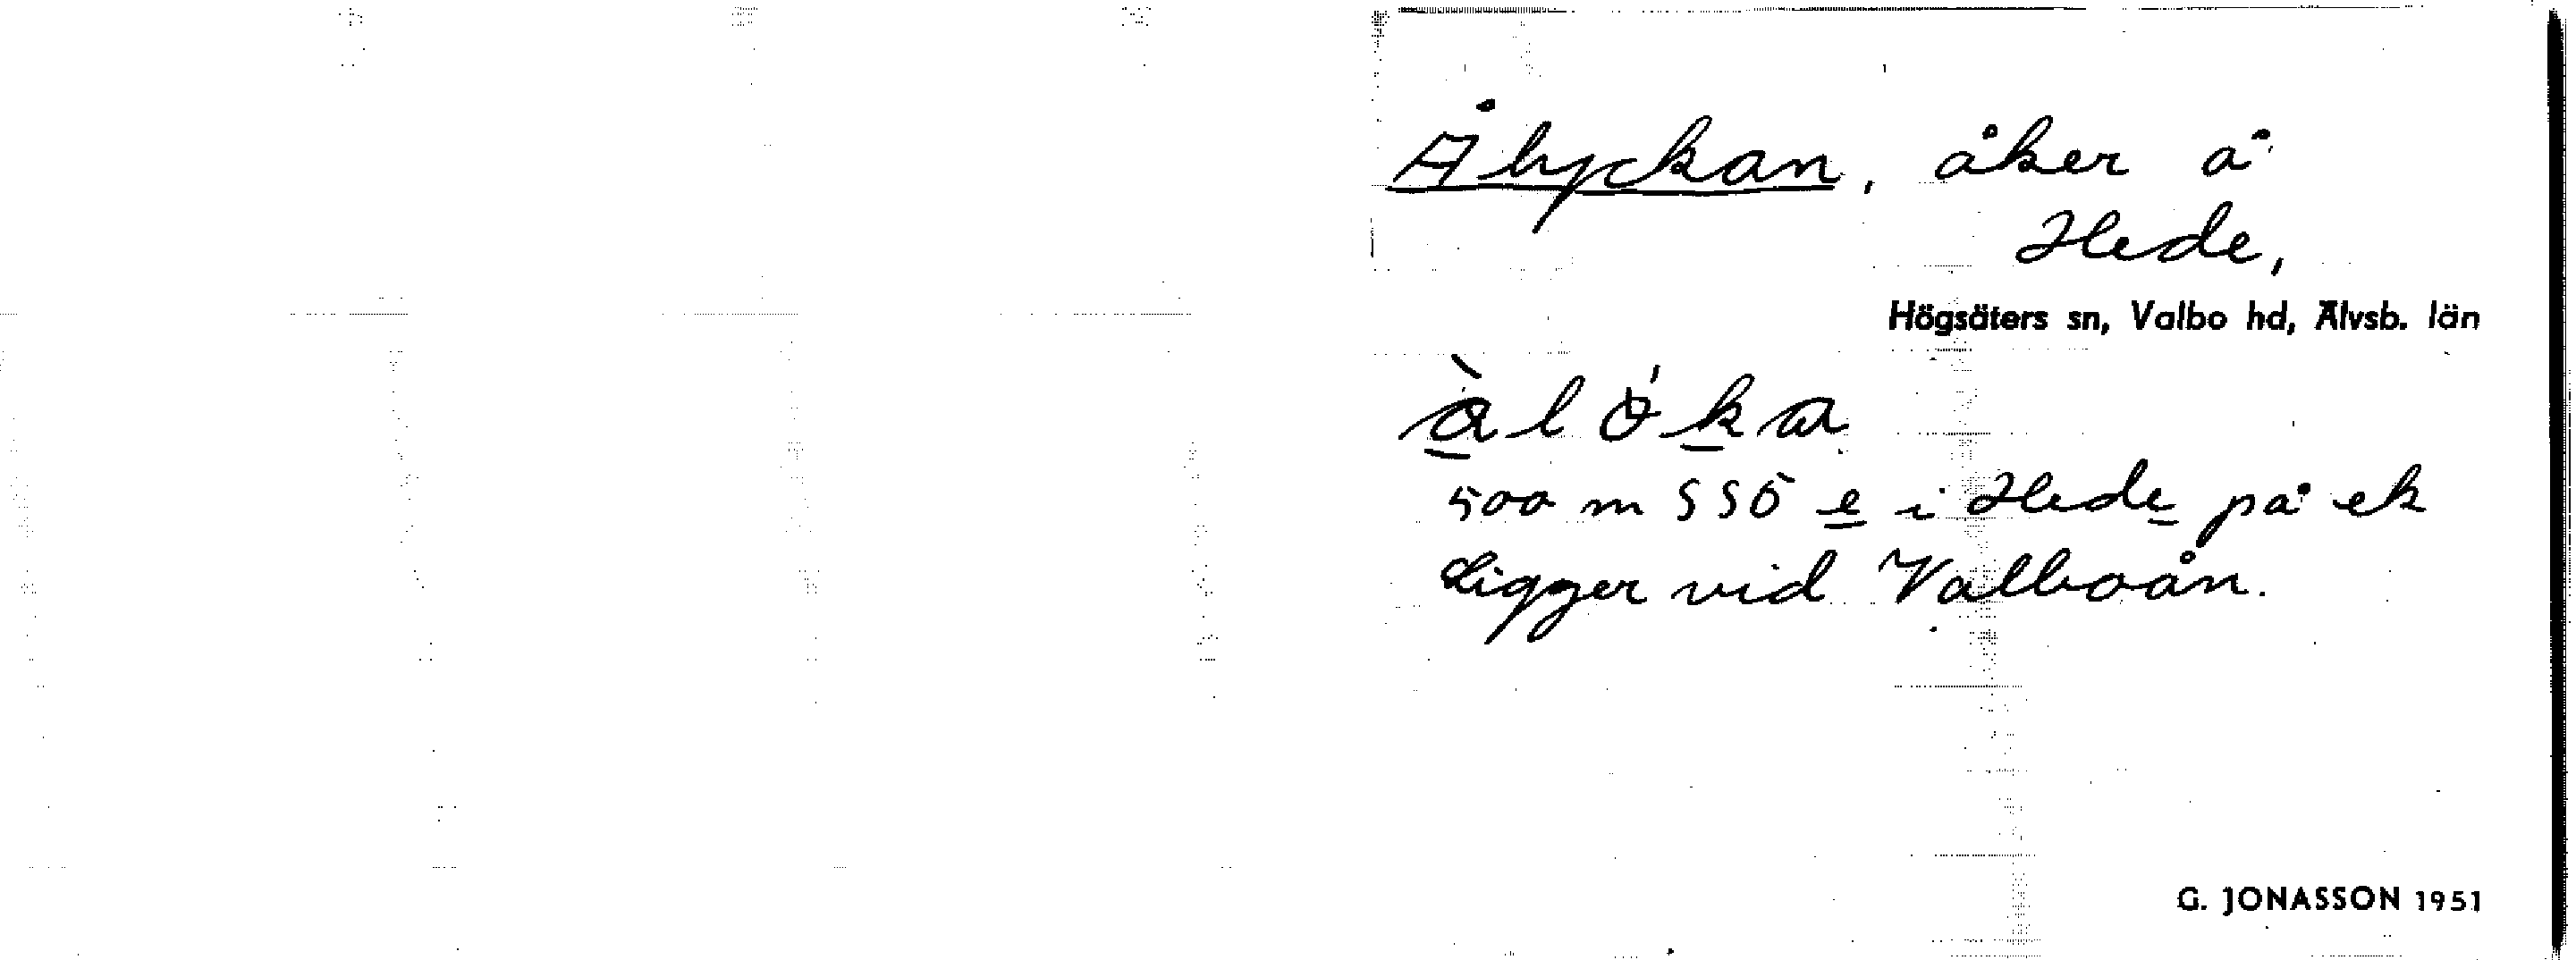 Ålyckan, åker å
Hede,
Högsäters sn, Valbo hd, Älvsb. län
500 m SSÖ e i Hede på ek
Ligger vid Valboån.
G. JONASSON 1951